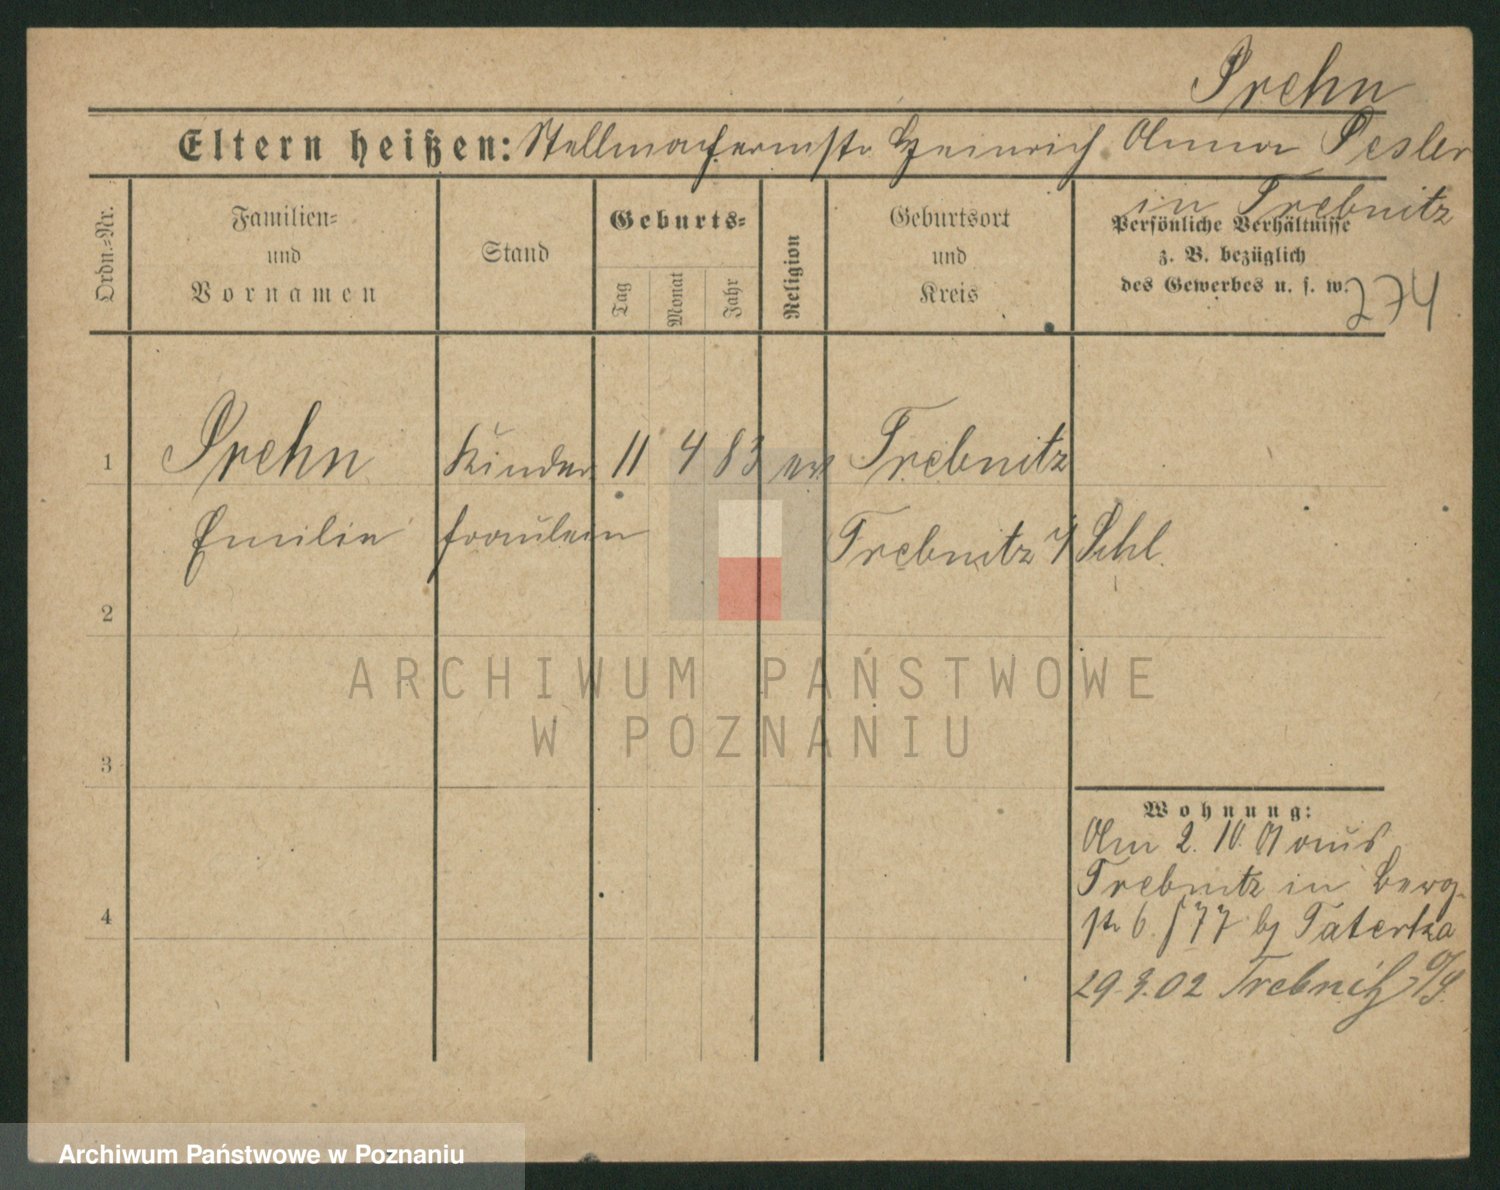 Prehn
Eltern heißen: Stellmachermstr Heinrich Anna Pesler
in Trebnitz
Ordn.-Nr.
Familien-
und
Vornamen
Stand
Geburts-
Tag
Monat
Jahr
Religion
Geburtsort
und
Kreis
Persönliche Verhältnisse
z. B. bezüglich
des Gewerbes u. s. w.
274
1 Prehn Kinder 11 4 83 ev Trebnitz
Emilie fräulein Trebnitz i/ Schl.
2
ARCHIWUM PAŃSTWOWE
W POZNANIU
3
Wohnung:
Am 2. 10. 01 aus
Trebnitz in Berg-
str 6 bei
4
29.3.02 Trebnitz
Archiwum Państwowe w Poznaniu